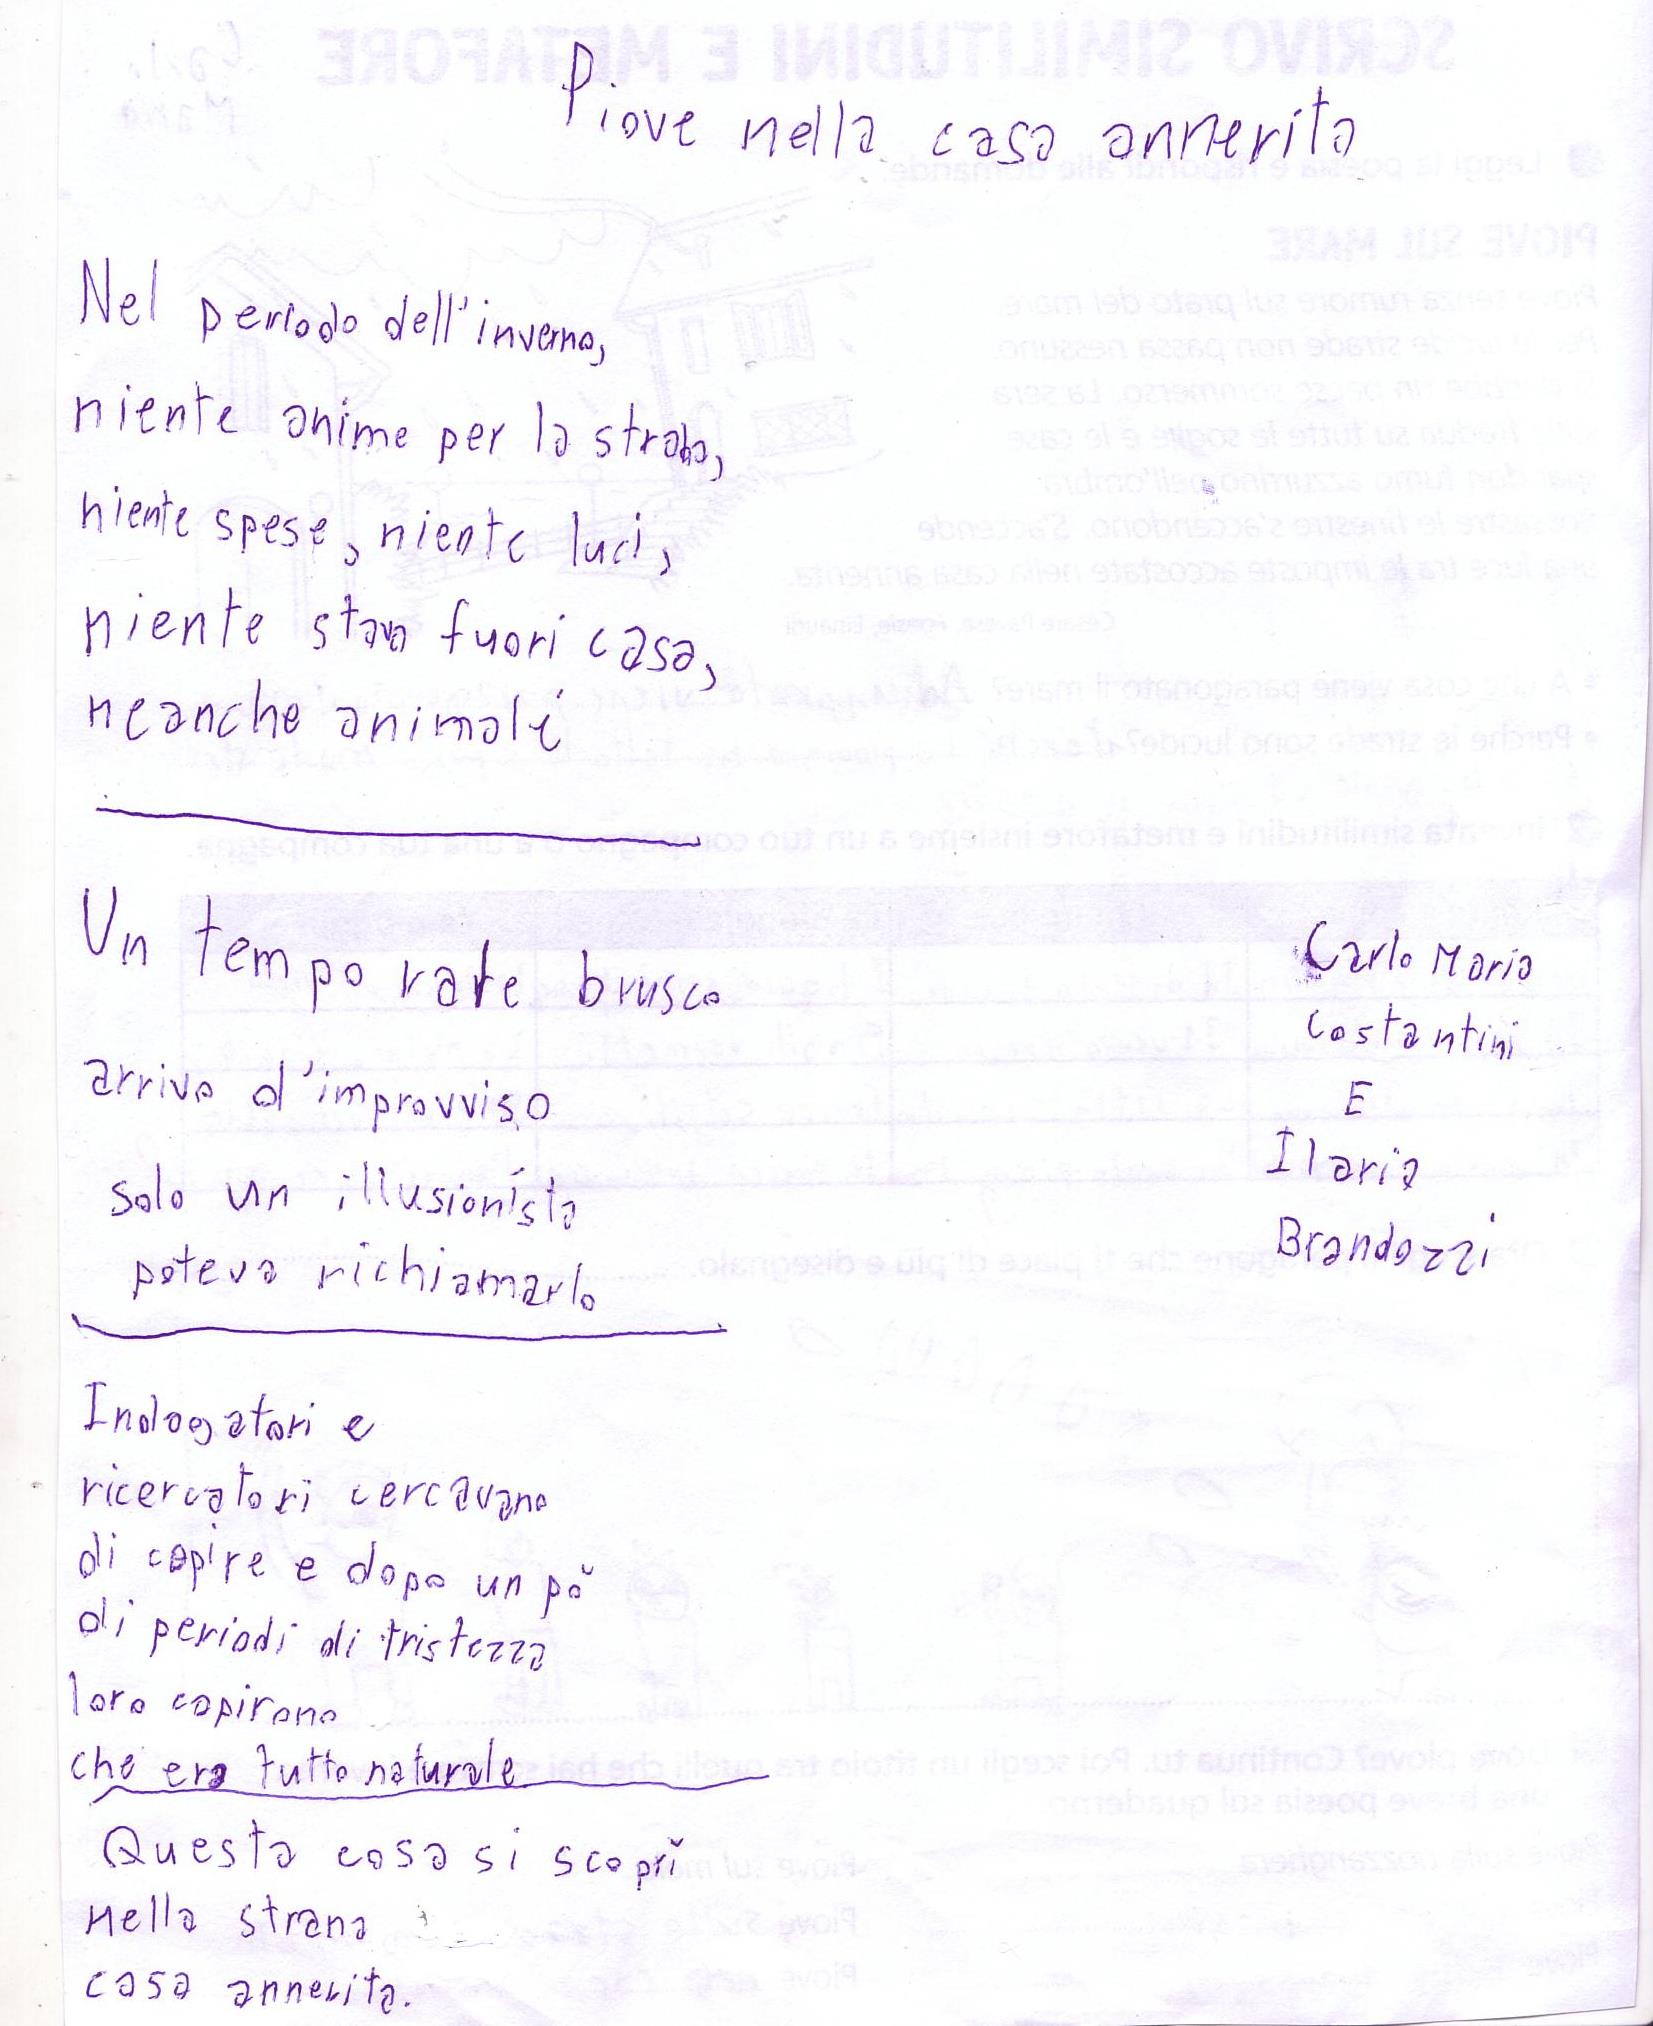 Piove nella casa annerita
Nel periodo dell'inverno,
niente anime per la strada,
niente spese, niente luci,
niente stava fuori casa,
neanche animali
Un temporale brusco
arriva d'improvviso
solo un illusionista
poteva richiamarlo
Carlo Maria
Costantini
E
Ilaria
Brandozzi
Indagatori e
ricercatori cercavano
di capire e dopo un pò
di periodi di tristezza
loro capirono
che era tutto naturale
Questa cosa si scoprì
nella strana
casa annerita.